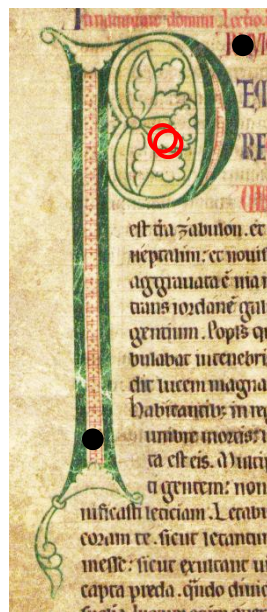 P
est tra zabulon. et
neptalim: et nouis
aggrauata ē uia m
trans iordanē gal
gentium. Poplꝰ q
bulabat in tenebri
dit lucem magna
habitantibꝫ in reg
umbre mortis:
ta est eis. Multi
ti gentem: non
nificasti leticiam. Letabū
coram te. sicut letantur
messe: sicut exultant ui
capta preda. qn̄do diuid